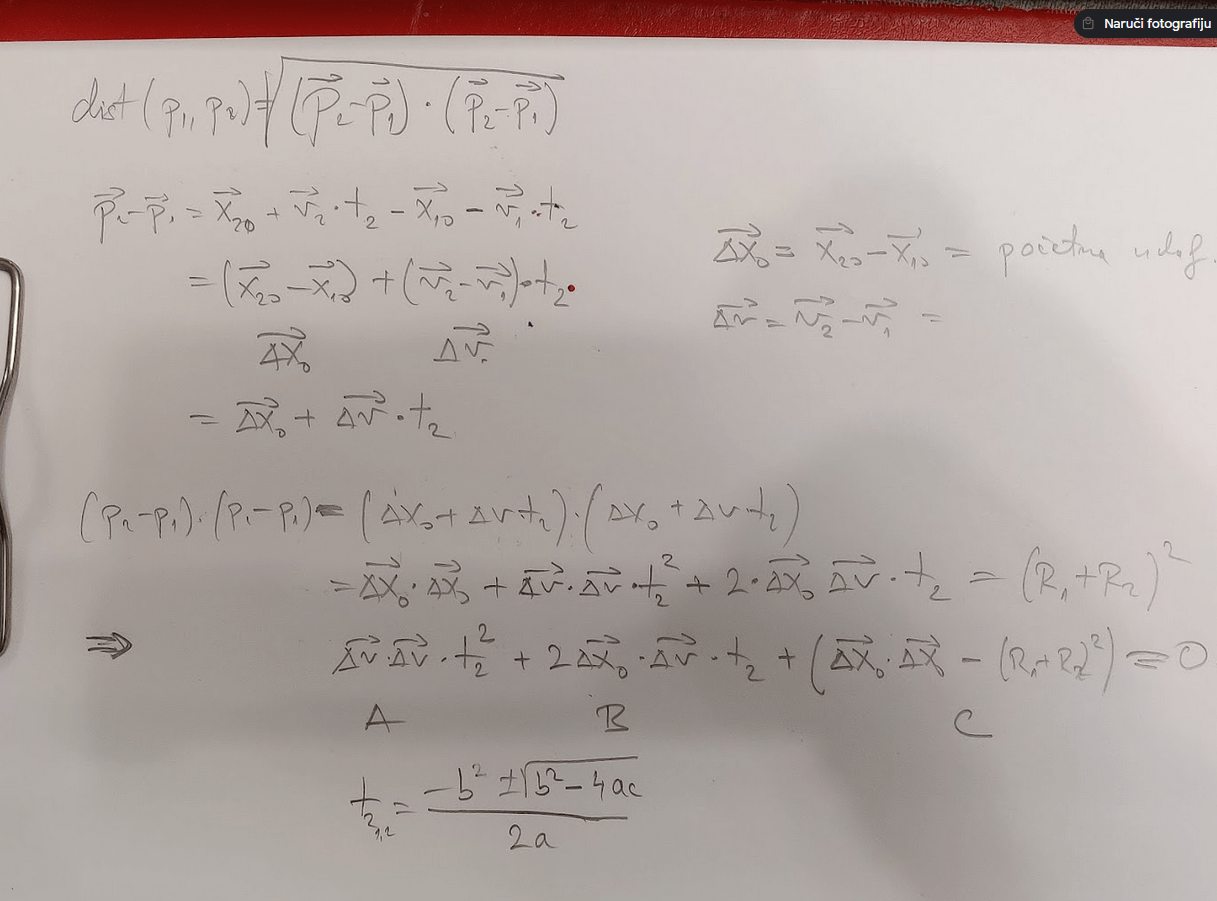 Naruči fotografiju
dist(p₁, p₂) = √((p⃗₂ - p⃗₁) · (p⃗₂ - p⃗₁))
p⃗₂ - p⃗₁ = x⃗₂₀ + v⃗₂ · t₂ - x⃗₁₀ - v⃗₁ · t₂
= (x⃗₂₀ - x⃗₁₀) + (v⃗₂ - v⃗₁) · t₂
Δx⃗₀ Δv⃗
= Δx⃗₀ + Δv⃗ · t₂
Δx⃗₀ = x⃗₂₀ - x⃗₁₀ = početna
Δv⃗ = v⃗₂ - v⃗₁ =
(p₂ - p₁) · (p₂ - p₁) = (Δx₀ + Δv t₂) · (Δx₀ + Δv t₂)
= Δx⃗₀ · Δx⃗₀ + Δv⃗ · Δv⃗ · t₂² + 2 · Δx⃗₀ Δv⃗ · t₂ = (R₁ + R₂)²
⇒ Δv⃗ · Δv⃗ · t₂² + 2 Δx⃗₀ · Δv⃗ · t₂ + (Δx⃗₀ · Δx⃗₀ - (R₁ + R₂)²) = 0
A B C
t₂₁,₂ = (-b² ± √(b² - 4ac)) / 2a